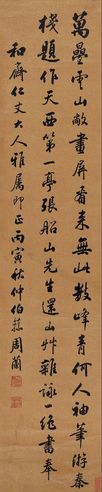 萬疊雲山敞畫屏看來無此數峰青何人袖筆游秦
棧題作天西第一亭張船山先生還山艸雜詠一絕書奉
和仁丈大人雅屬即正丙寅秋仲伯蓀周蘭